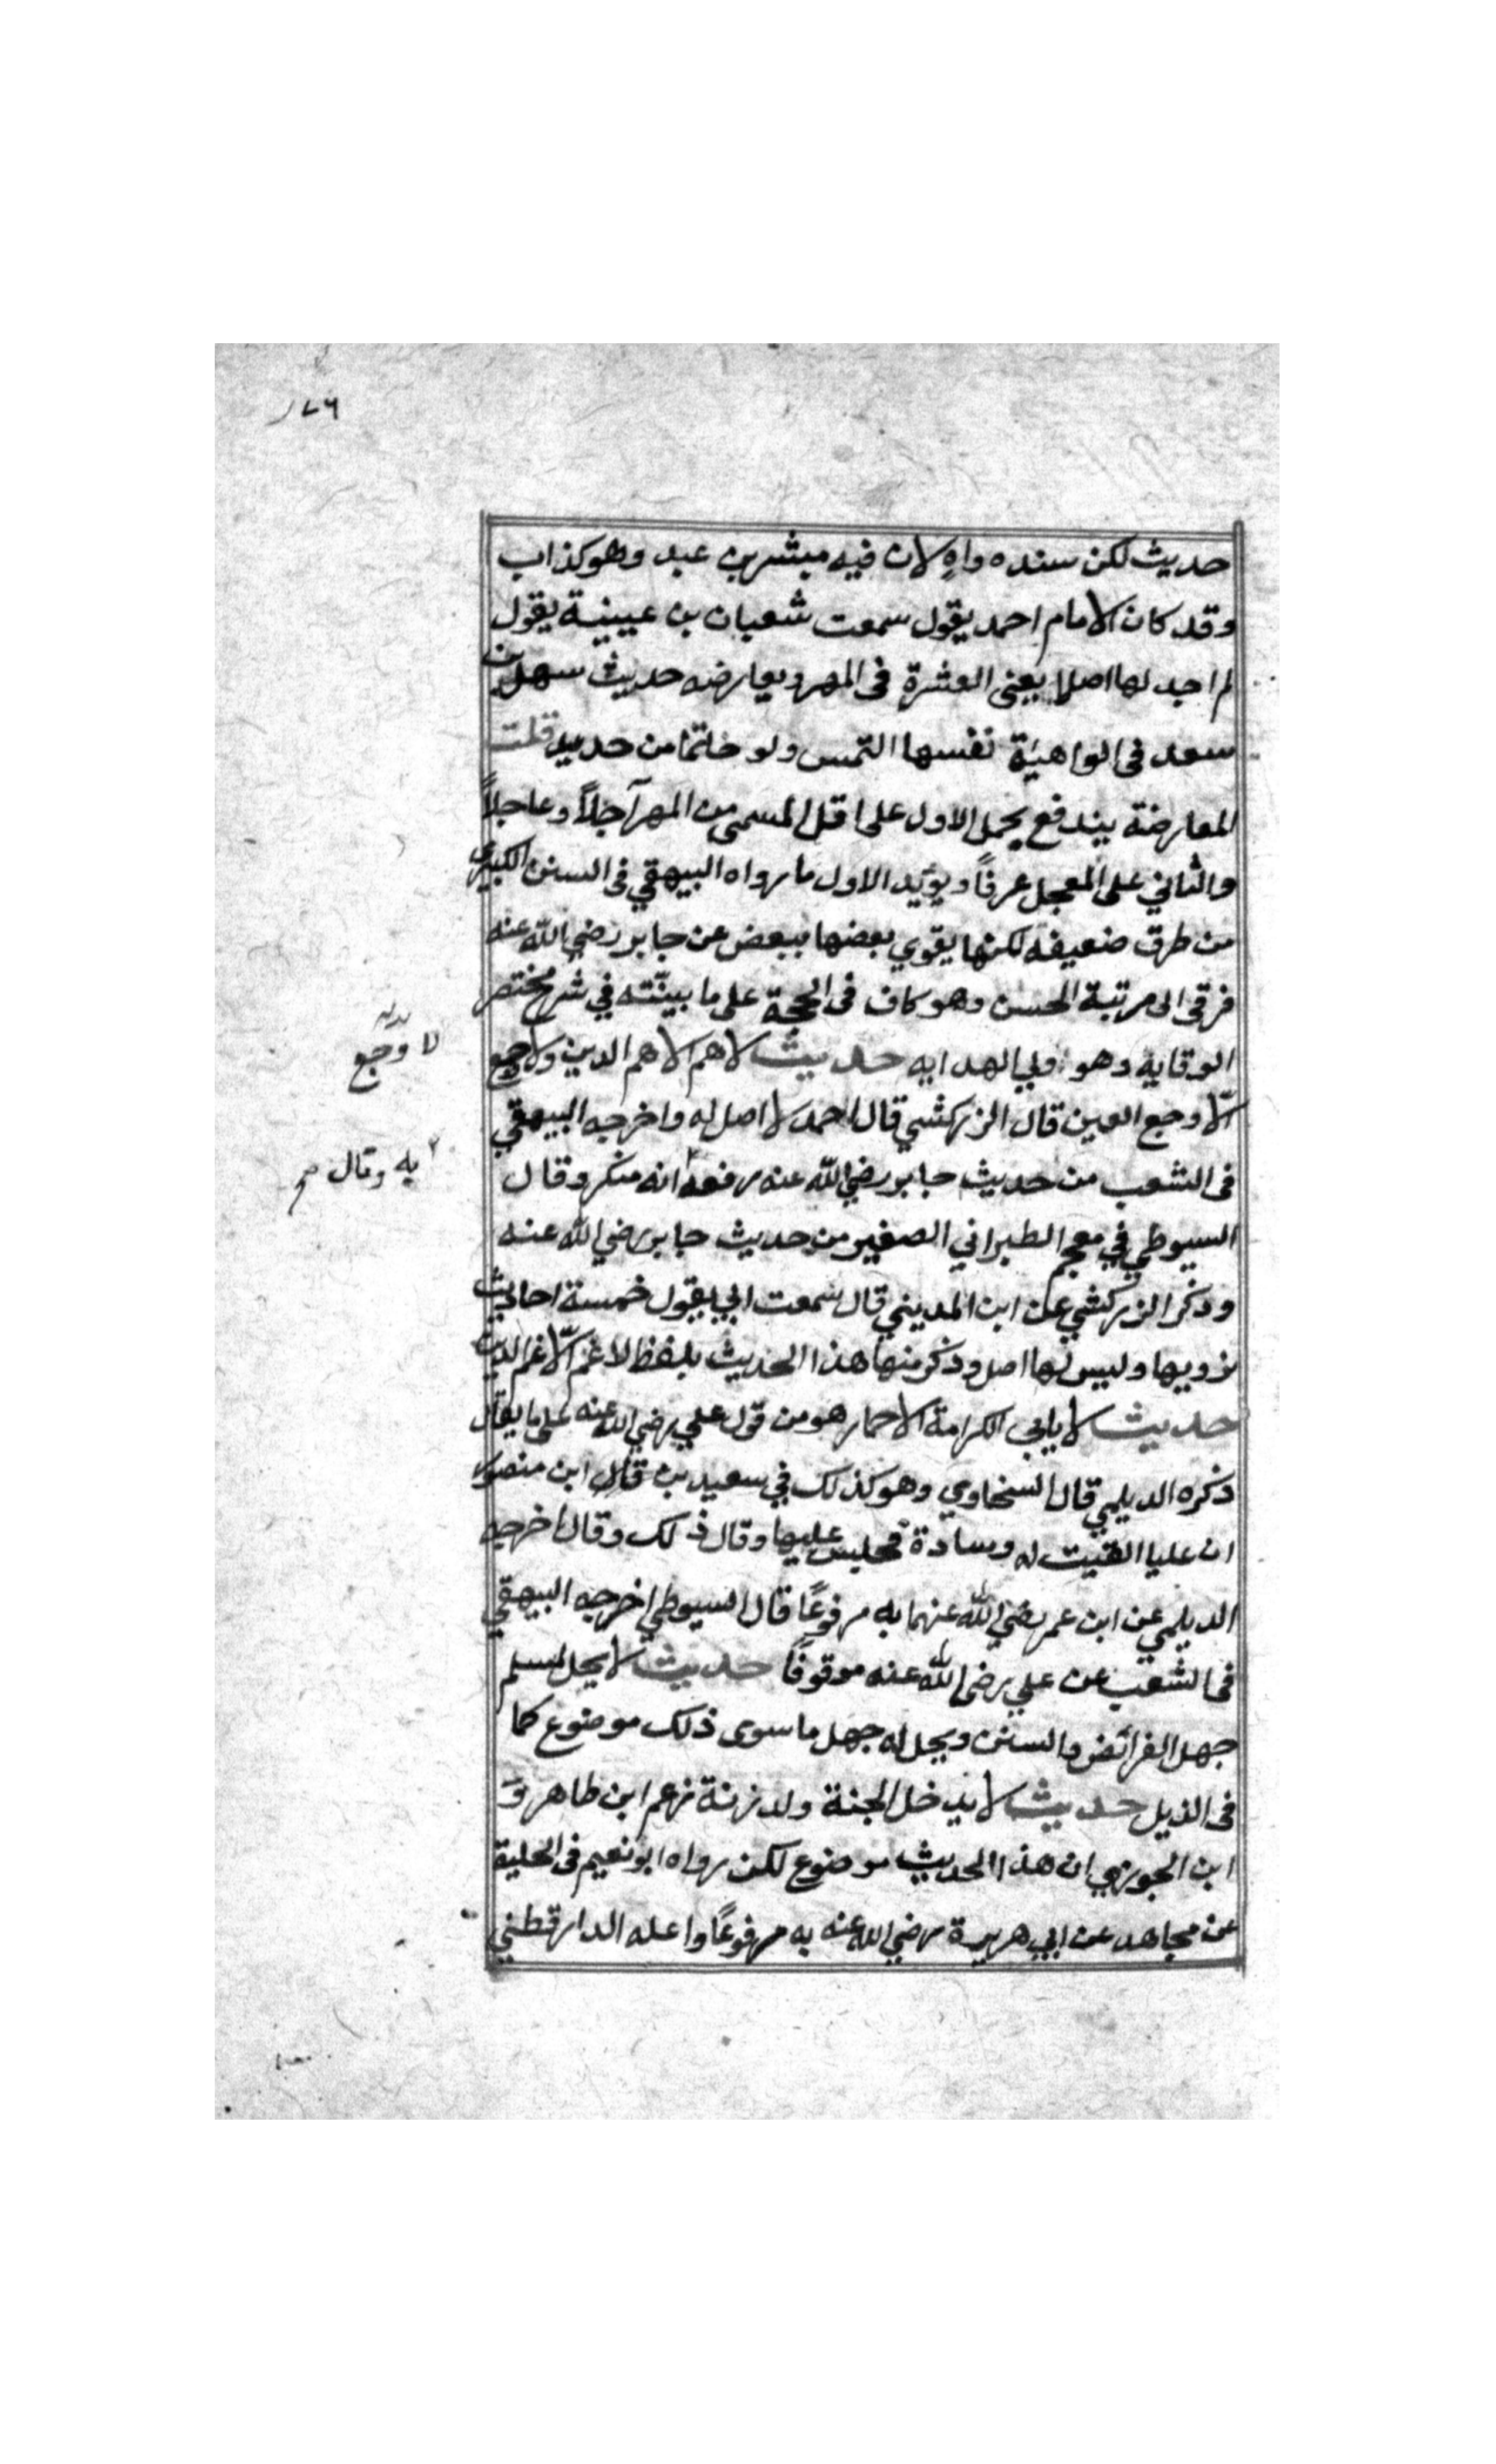 ١٧٦
حديث لكن سنده واهٍ لان فيه مبشر بن عبد وهو كذاب
وقد كان الامام احمد يقول سمعت شعبان بن عيينة يقول
لم اجد لها اصلا يعنى العشرة فى المهر ويعارضه حديث سهل بن
سعد فى الواهية نفسها التمس ولو خاتما من حديد قلت
المعارضة يندفع بحمل الاول على اقل المسمى من المهر آجلاً وعاجلاً
والثاني على المعجل عرفاً ويؤيد الاول ما رواه البيهقي فى السنن الكبرى
من طرق ضعيفه لكنها يقوي بعضها ببعض عن جابر رضي الله عنه
فرقى الى مرتبة الحسن وهو كاف فى الحجة على ما بينّته في شرح مختصر
الوقاية وهو اولي الهدايه حديث لا هم الا هم الدين ولا وجع
الّا وجع العين قال الزركشي قال احمد لا اصل له واخرجه البيهقي
فى الشعب من حديث جابر رضي الله عنه رفعه انه منكر وقال
السيوطي في معجم الطبراني الصغير من حديث جابر رضي الله عنه
وذكر الزركشي عن ابن المديني قال سمعت ابي يقول خمسة احاديث
نرويها وليس لها اصل وذكر منها هذا الحديث بلفظ لا غم الّا غم الدين
حديث لا يابى الكرامة الا حمار هو من قول علي رضي الله عنه على ما يقال
ذكره الديلمي قال السخاوي وهو كذلك في سعيد بن قال ابن منصور
ان عليا القيت له وسادة فجلس عليها وقال ذلك وقال اخرجه
الديلمي عن ابن عمر رضي الله عنهما به مرفوعًا قال السيوطي اخرجه البيهقي
فى الشعب عن علي رضى الله عنه موقوفًا حديث لا يحل لمسلم
جهل الفرائض والسنن ويحل له جهل ما سوى ذلك موضوع كما
فى الذيل حديث لا يدخل الجنة ولد زنة زعم ابن طاهر وَ
ابن الجوزي ان هذا الحديث موضوع لكن رواه ابو نعيم فى الحلية
عن مجاهد عن ابي هريرة رضي الله عنه به مرفوعًا واعله الدارقطني
لا وجع
به وقال صح